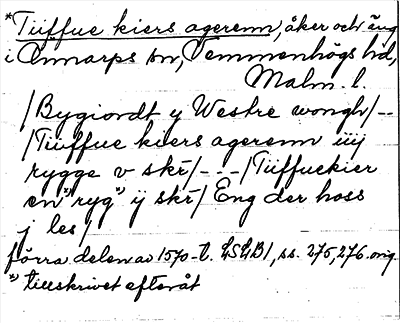 *Tüffue kiers agerenn, åker och äng
i Önnarps sn, Vemmenhögs hd,
Malm. l.
/Bygiordt y Westre wongh/--
/Tüffue kiers agerenn iiij
rygge v skr̄/---/Tüffuekier
en "ryg" ij skr̄/ Eng der hoss
j les/
förra delen av 1570-t. LSLB1, ss. 275, 276. orig.
") tillskrivet efteråt